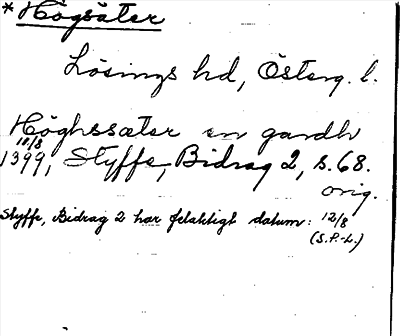 *Högsäter
Lösings hd, Österg. l.
Höghssæter en gardh
11/8
1399, Styffe, Bidrag 2, s. 68.
orig.
Styffe, Bidrag 2 har felaktigt datum: 12/8
(S.P.-L.)